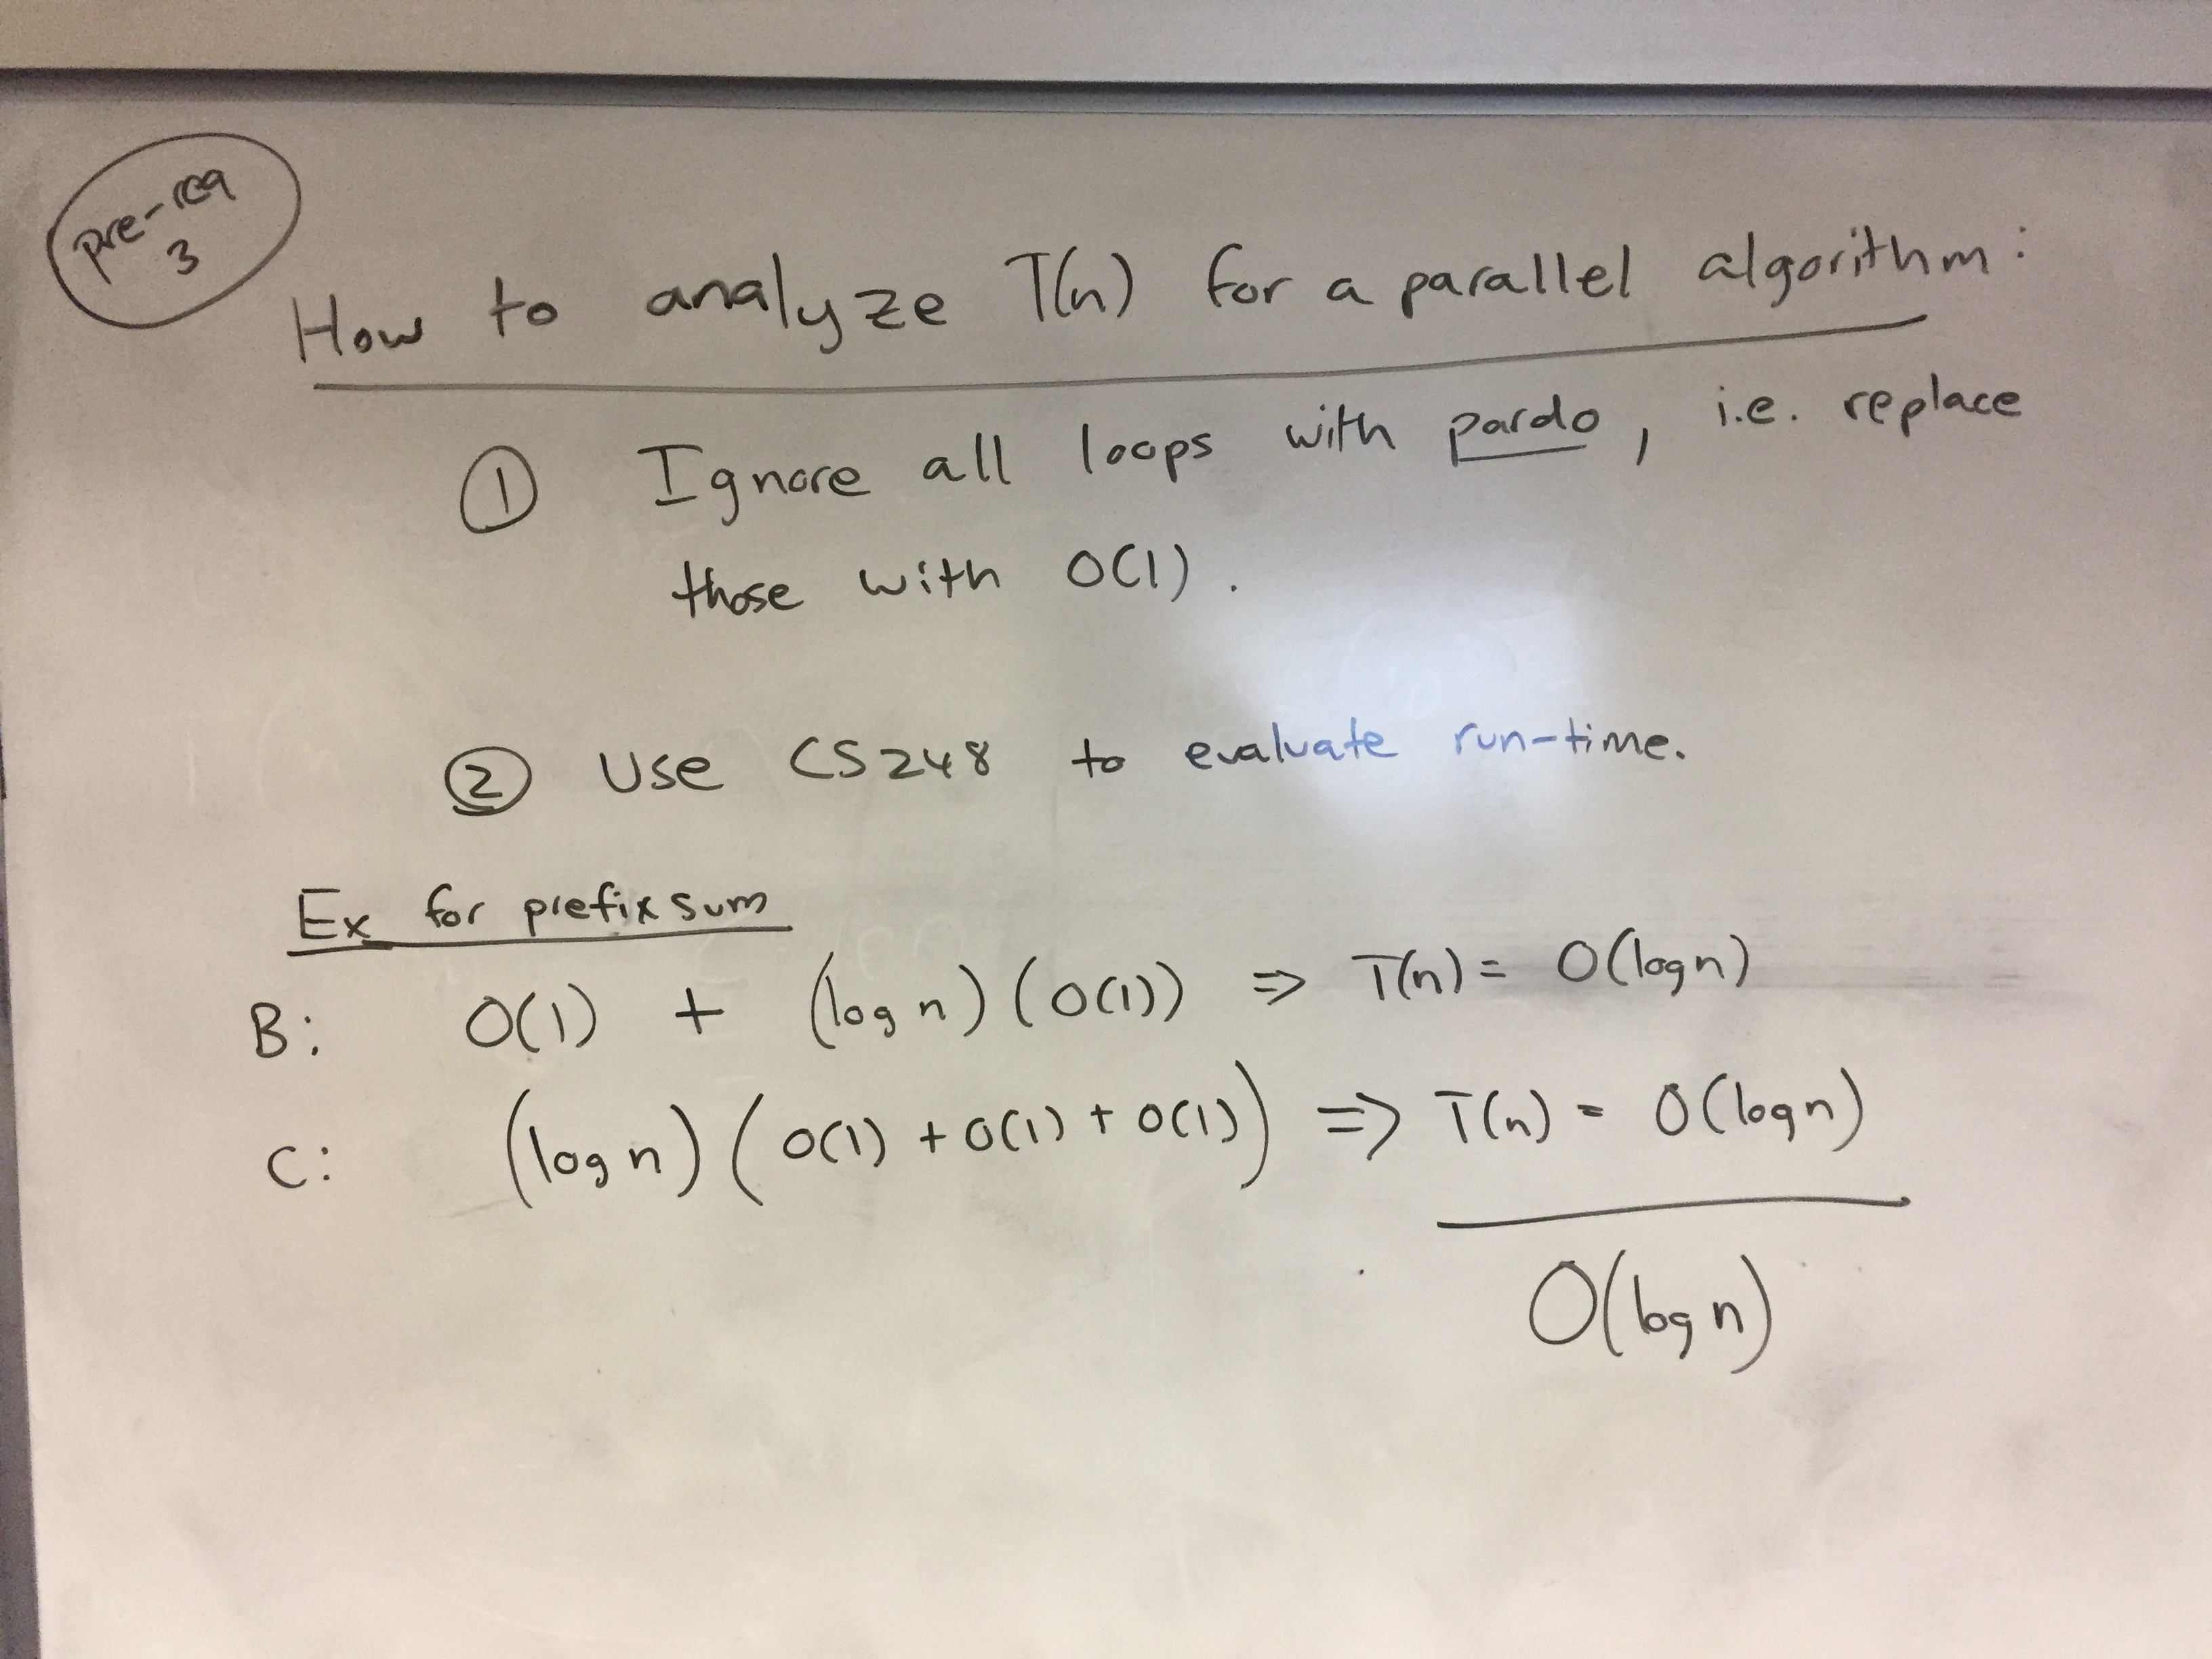 pre-req
3
How to analyze T(n) for a parallel algorithm:
① Ignore all loops with pardo, i.e. replace
those with O(1).
② Use CS248 to evaluate run-time.
Ex for prefix sum
B: O(1) + (log n)(O(1)) => T(n) = O(log n)
C: (log n)(O(1) + O(1) + O(1)) => T(n) = O(log n)
O(log n)